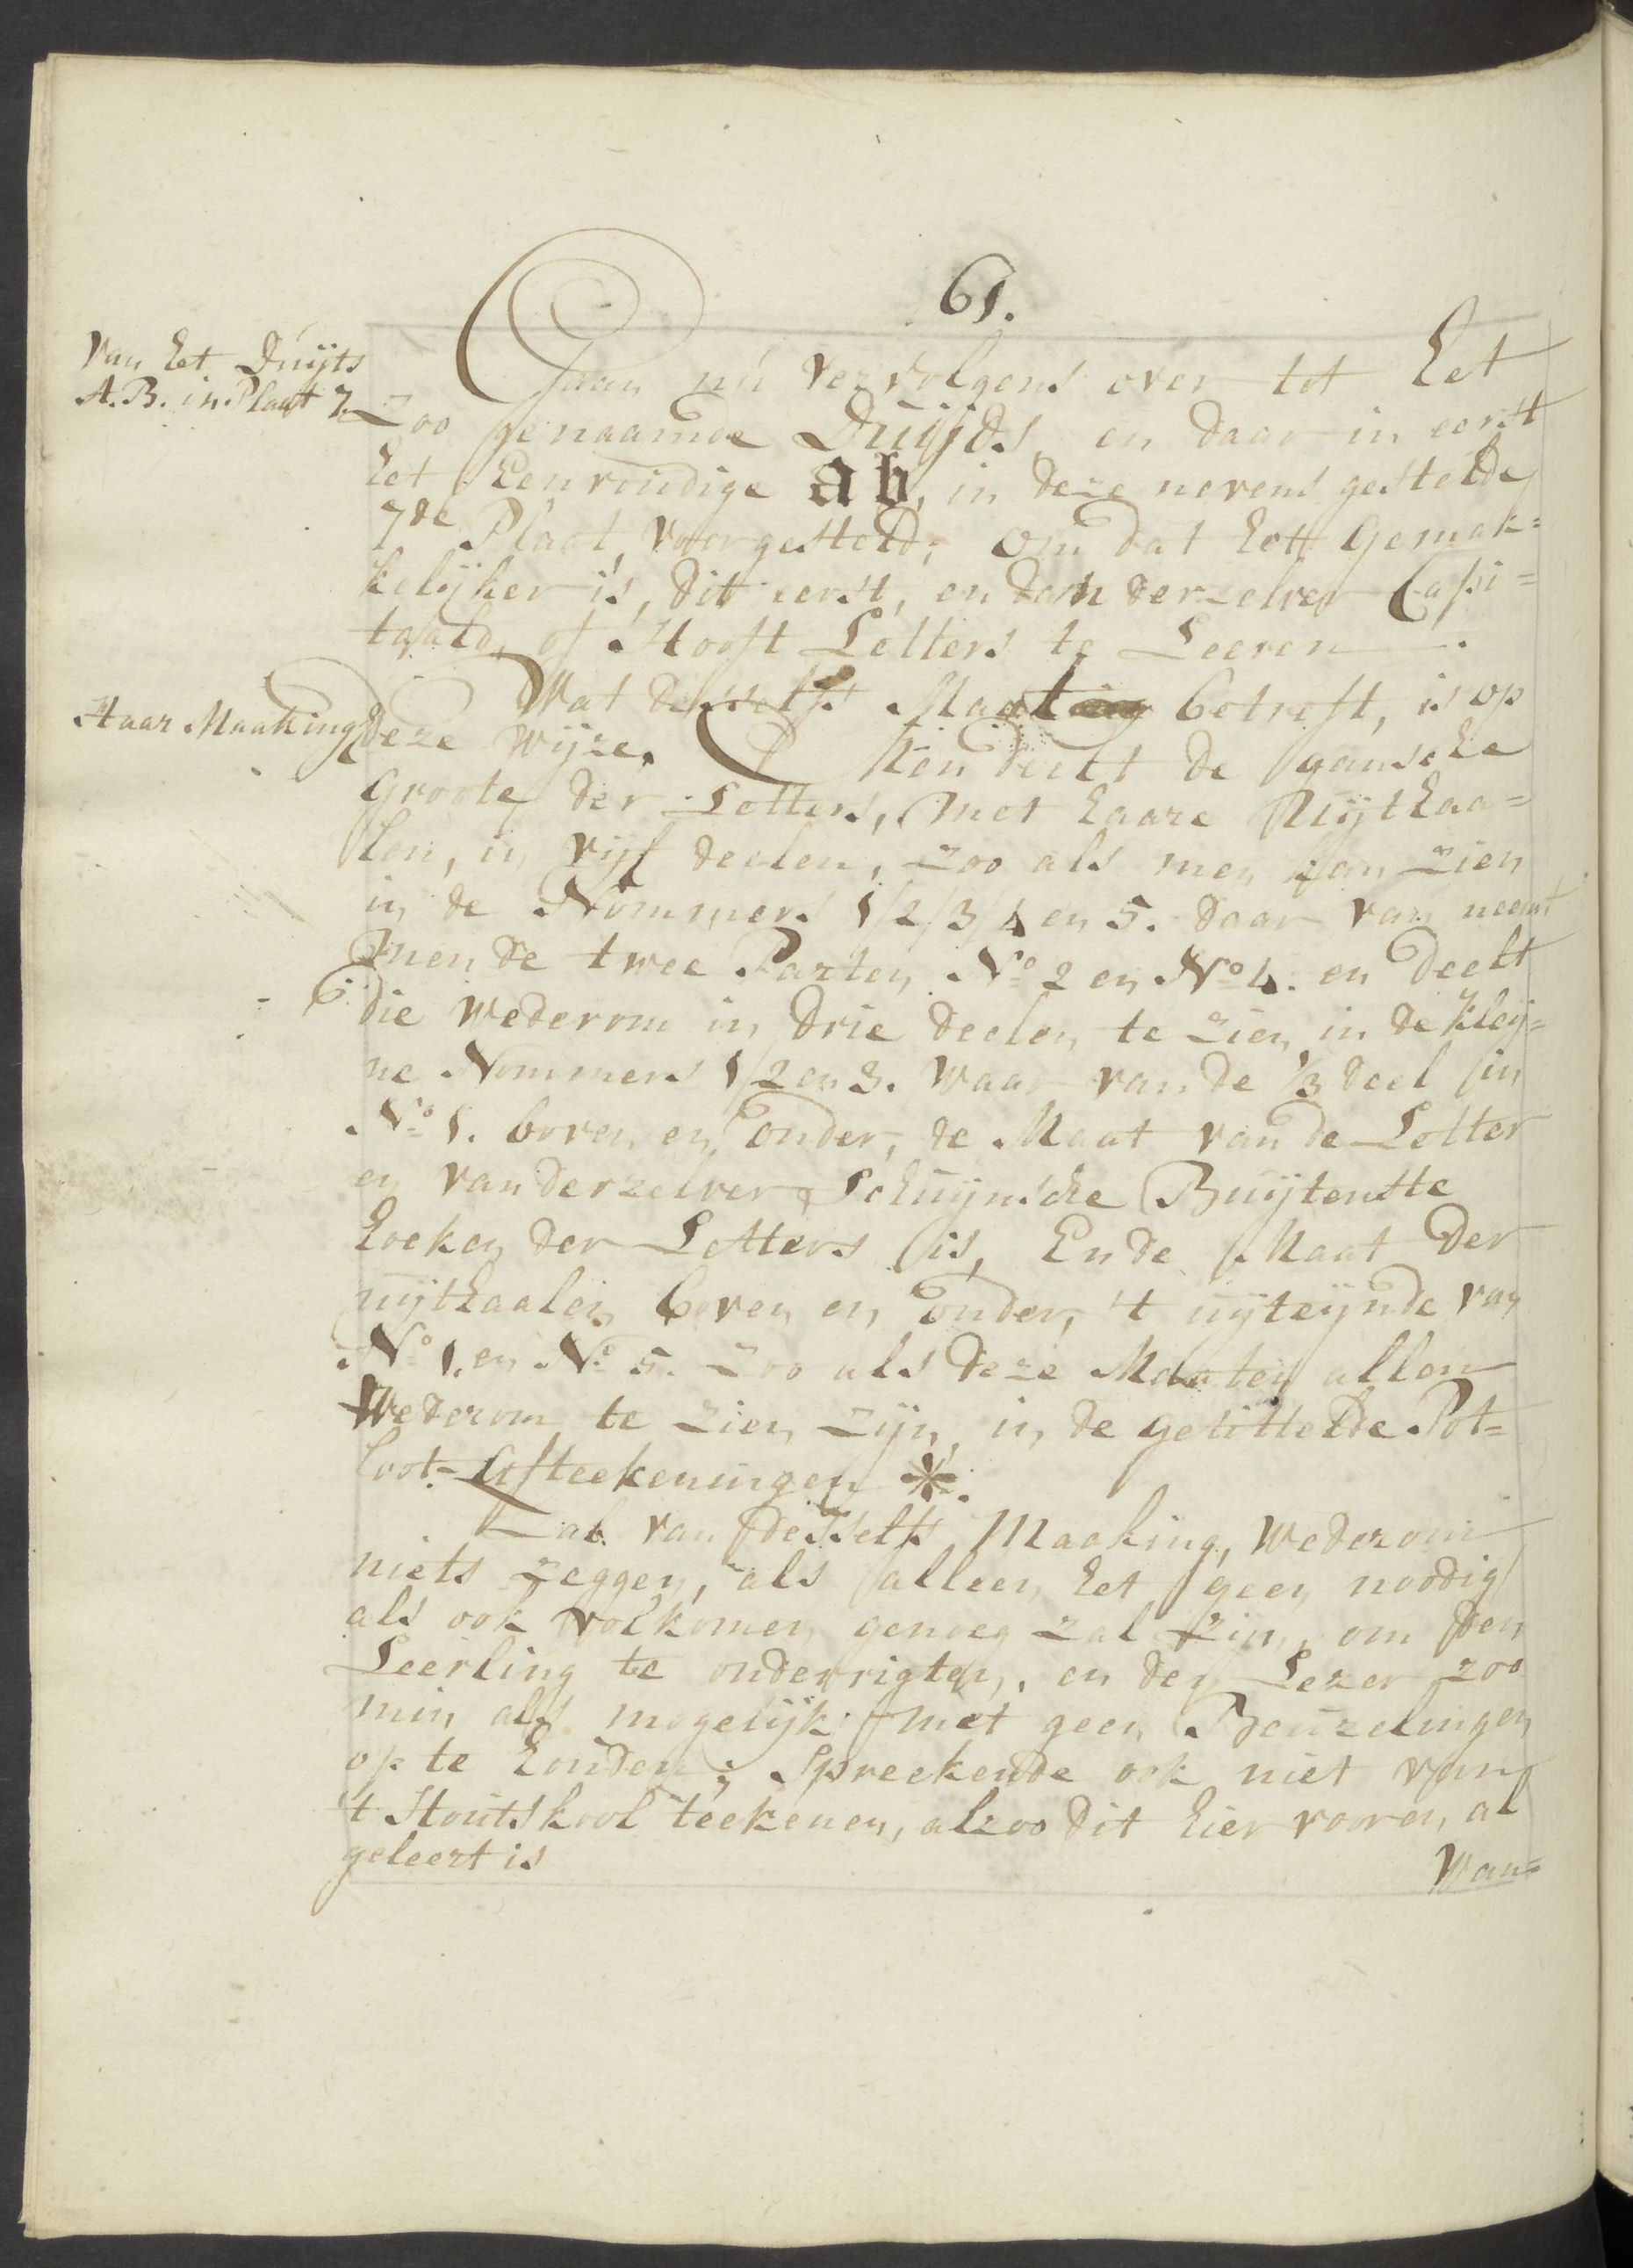 61.
Van het Duijts
A.B. in Plaat 7.
Gaan nú vervolgens over tot het
Zoo genaamde Duijds, en daar in eerst
het Eenvoúdige ab, in deze nevens gestelde
7de Plaat, voorgesteld; om dat hett Gemak=
kelijker is, dit eerst, en dan derzelver Capi=
taald, of Hooft Letters te Leeren.
Haar Maaking
Wat desselfs Maat betreft, is op
deze wijze. Men deelt de gansche
Groote der Letters, met haare Uijthaa=
len, in vijf deelen, zoo als men kan zien
in de Nommers 1/2/3/4 en 5. daar van neemt
men de twee Parten No 2 en No 4. en deelt
die wederom in drie deelen te zien in de kley=
ne Nommers 1/2 en 3. waar van de 1/3 deel in
No 1. boven en onder, de Maat van de Letter
en van derzelver Schuijnsche Buijtenste
hoeken der Letters is, En de Maat der
uijthaalen boven en onder, 't uijteijnde van
No 1. en No 5. zoo als deze Maaten allen
Wederom te zien zijn, in de getittelde Pot=
loot-Afteekeningen *.
Zal van desselfs Maaking, wederom
niets zeggen, als alleen het geen noodig
als ook volkomen genoeg zal zijn, om den
Leerling te onderrigten, en den Lezer zoo
min als mogelijk met geen Beuzelingen
op te houden; Spreekende ook niet van
't Houtskool teekenen, alzoo dit hier vooren, al
geleert is
Wan=